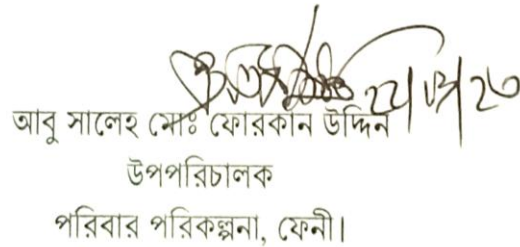 আবু সালেহ মোঃ ফোরকান উদ্দিন
উপপরিচালক
পরিবার পরিকল্পনা, ফেনী।